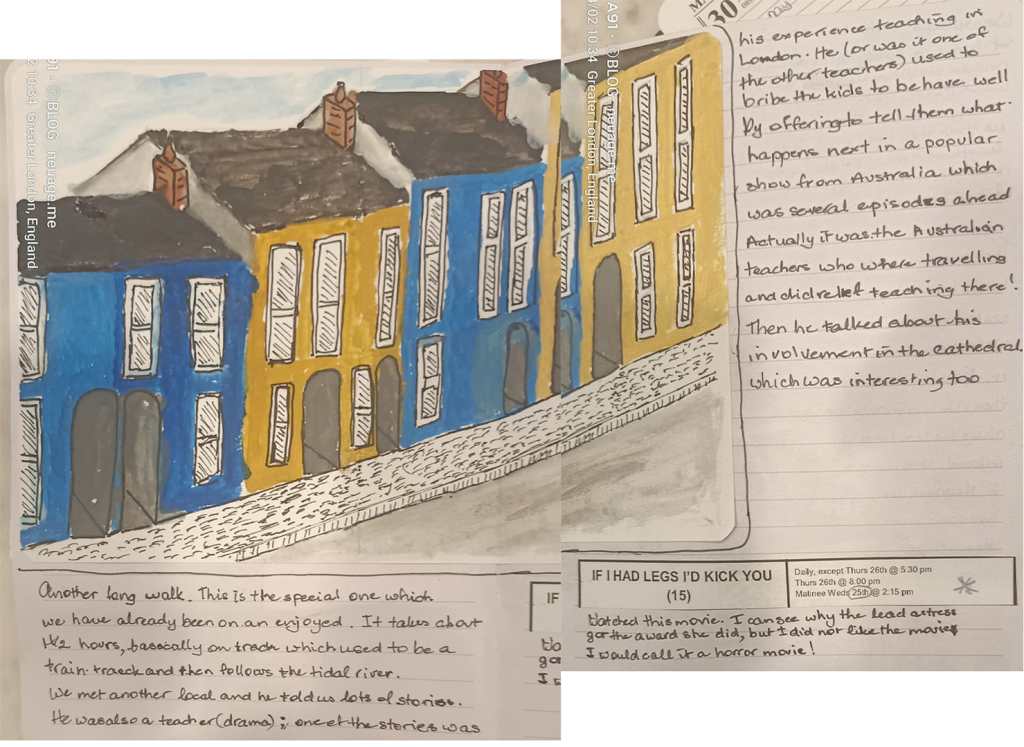 Another long walk. This is the special one which
we have already been on an enjoyed. It takes about
1 1/2 hours, basically on track which used to be a
train traeck and then follows the tidal river.
We met another local and he told us lots of stories.
He was also a teacher (drama); one of the stories was
his experience teaching in
London. He (or was it one of
the other teachers) used to
bribe the kids to behave well
by offering to tell them what
happens next in a popular
show from Australia which
was several episodes ahead
Actually it was the Australian
teachers who where travelling
and did relief teaching there!
Then he talked about his
involvement in the cathedral
which was interesting too
IF I HAD LEGS I'D KICK YOU
(15)
Daily, except Thurs 26th @ 5:30 pm
Thurs 26th @ 8:00 pm
Matinee Weds 25th @ 2:15 pm
Watched this movie. I can see why the lead actress
got the award she did, but I did not like the movie
I would call it a horror movie!
IF
30
Greater London, England
10:34 Greater London, England
A91